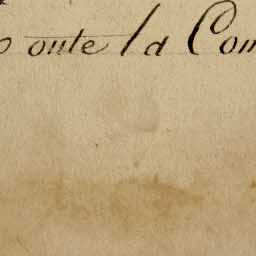 oute la Com